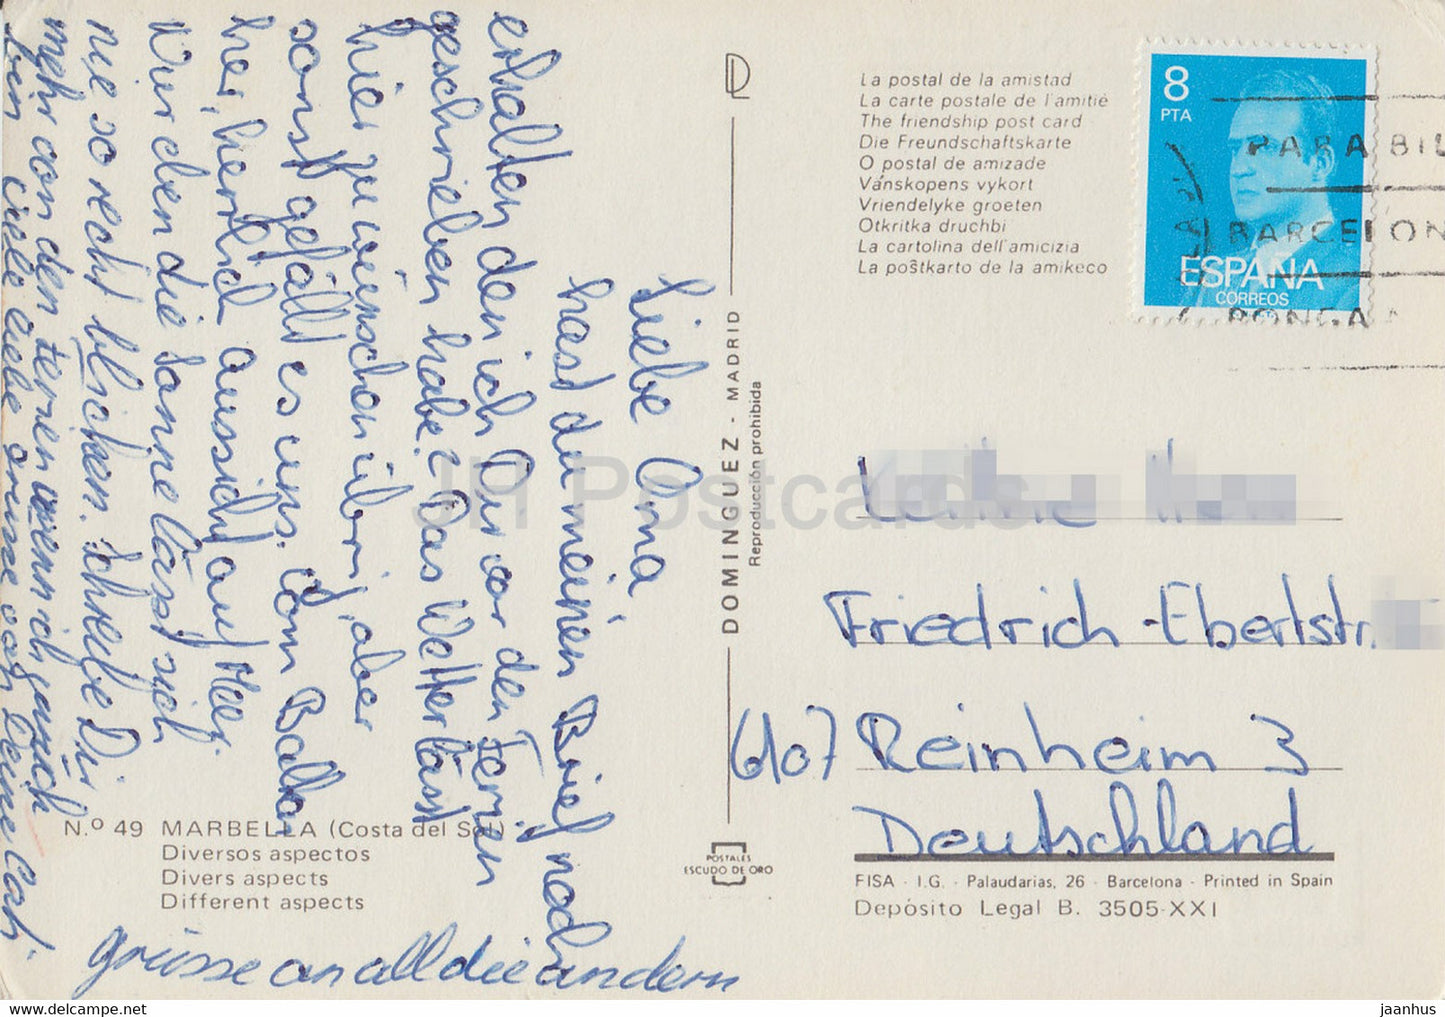 Liebe Oma
hast du meinen Brief noch
erhalten den ich Dir vor den Ferien
geschrieben habe? Das Wetter lässt
hier zu wünschen übrig, aber
sonst gefällt es uns. Vom Balkon
her, herrlich aussicht auf Meer.
Nur eben die Sonne lässt sich
nie so recht blicken. Schreibe Dir
mehr von den ferien wenn ich zurück
bin viele viele grüsse von Deine
grüsse an all die andern
N.º 49 MARBELLA (Costa del Sol)
Diversos aspectos
Divers aspects
Different aspects
DOMINGUEZ - MADRID
Reproducción prohibida
POSTALES
ESCUDO DE ORO
La postal de la amistad
La carte postale de l'amitié
The friendship post card
Die Freundschaftskarte
O postal de amizade
Vánskopens vykort
Vriendelyke groeten
Otkritka druchbi
La cartolina dell'amicizia
La poŝtkarto de la amikeco
8
PTA
ESPAÑA
CORREOS
PARA BIL
BARCELON
PONGA
Friedrich-Ebertstr.
6107 Reinheim 3
Deutschland
FISA - I.G. - Palaudarias, 26 - Barcelona - Printed in Spain
Depósito Legal B. 3505-XXI
JH Postcards
www.hippostcard.com
jaanhus